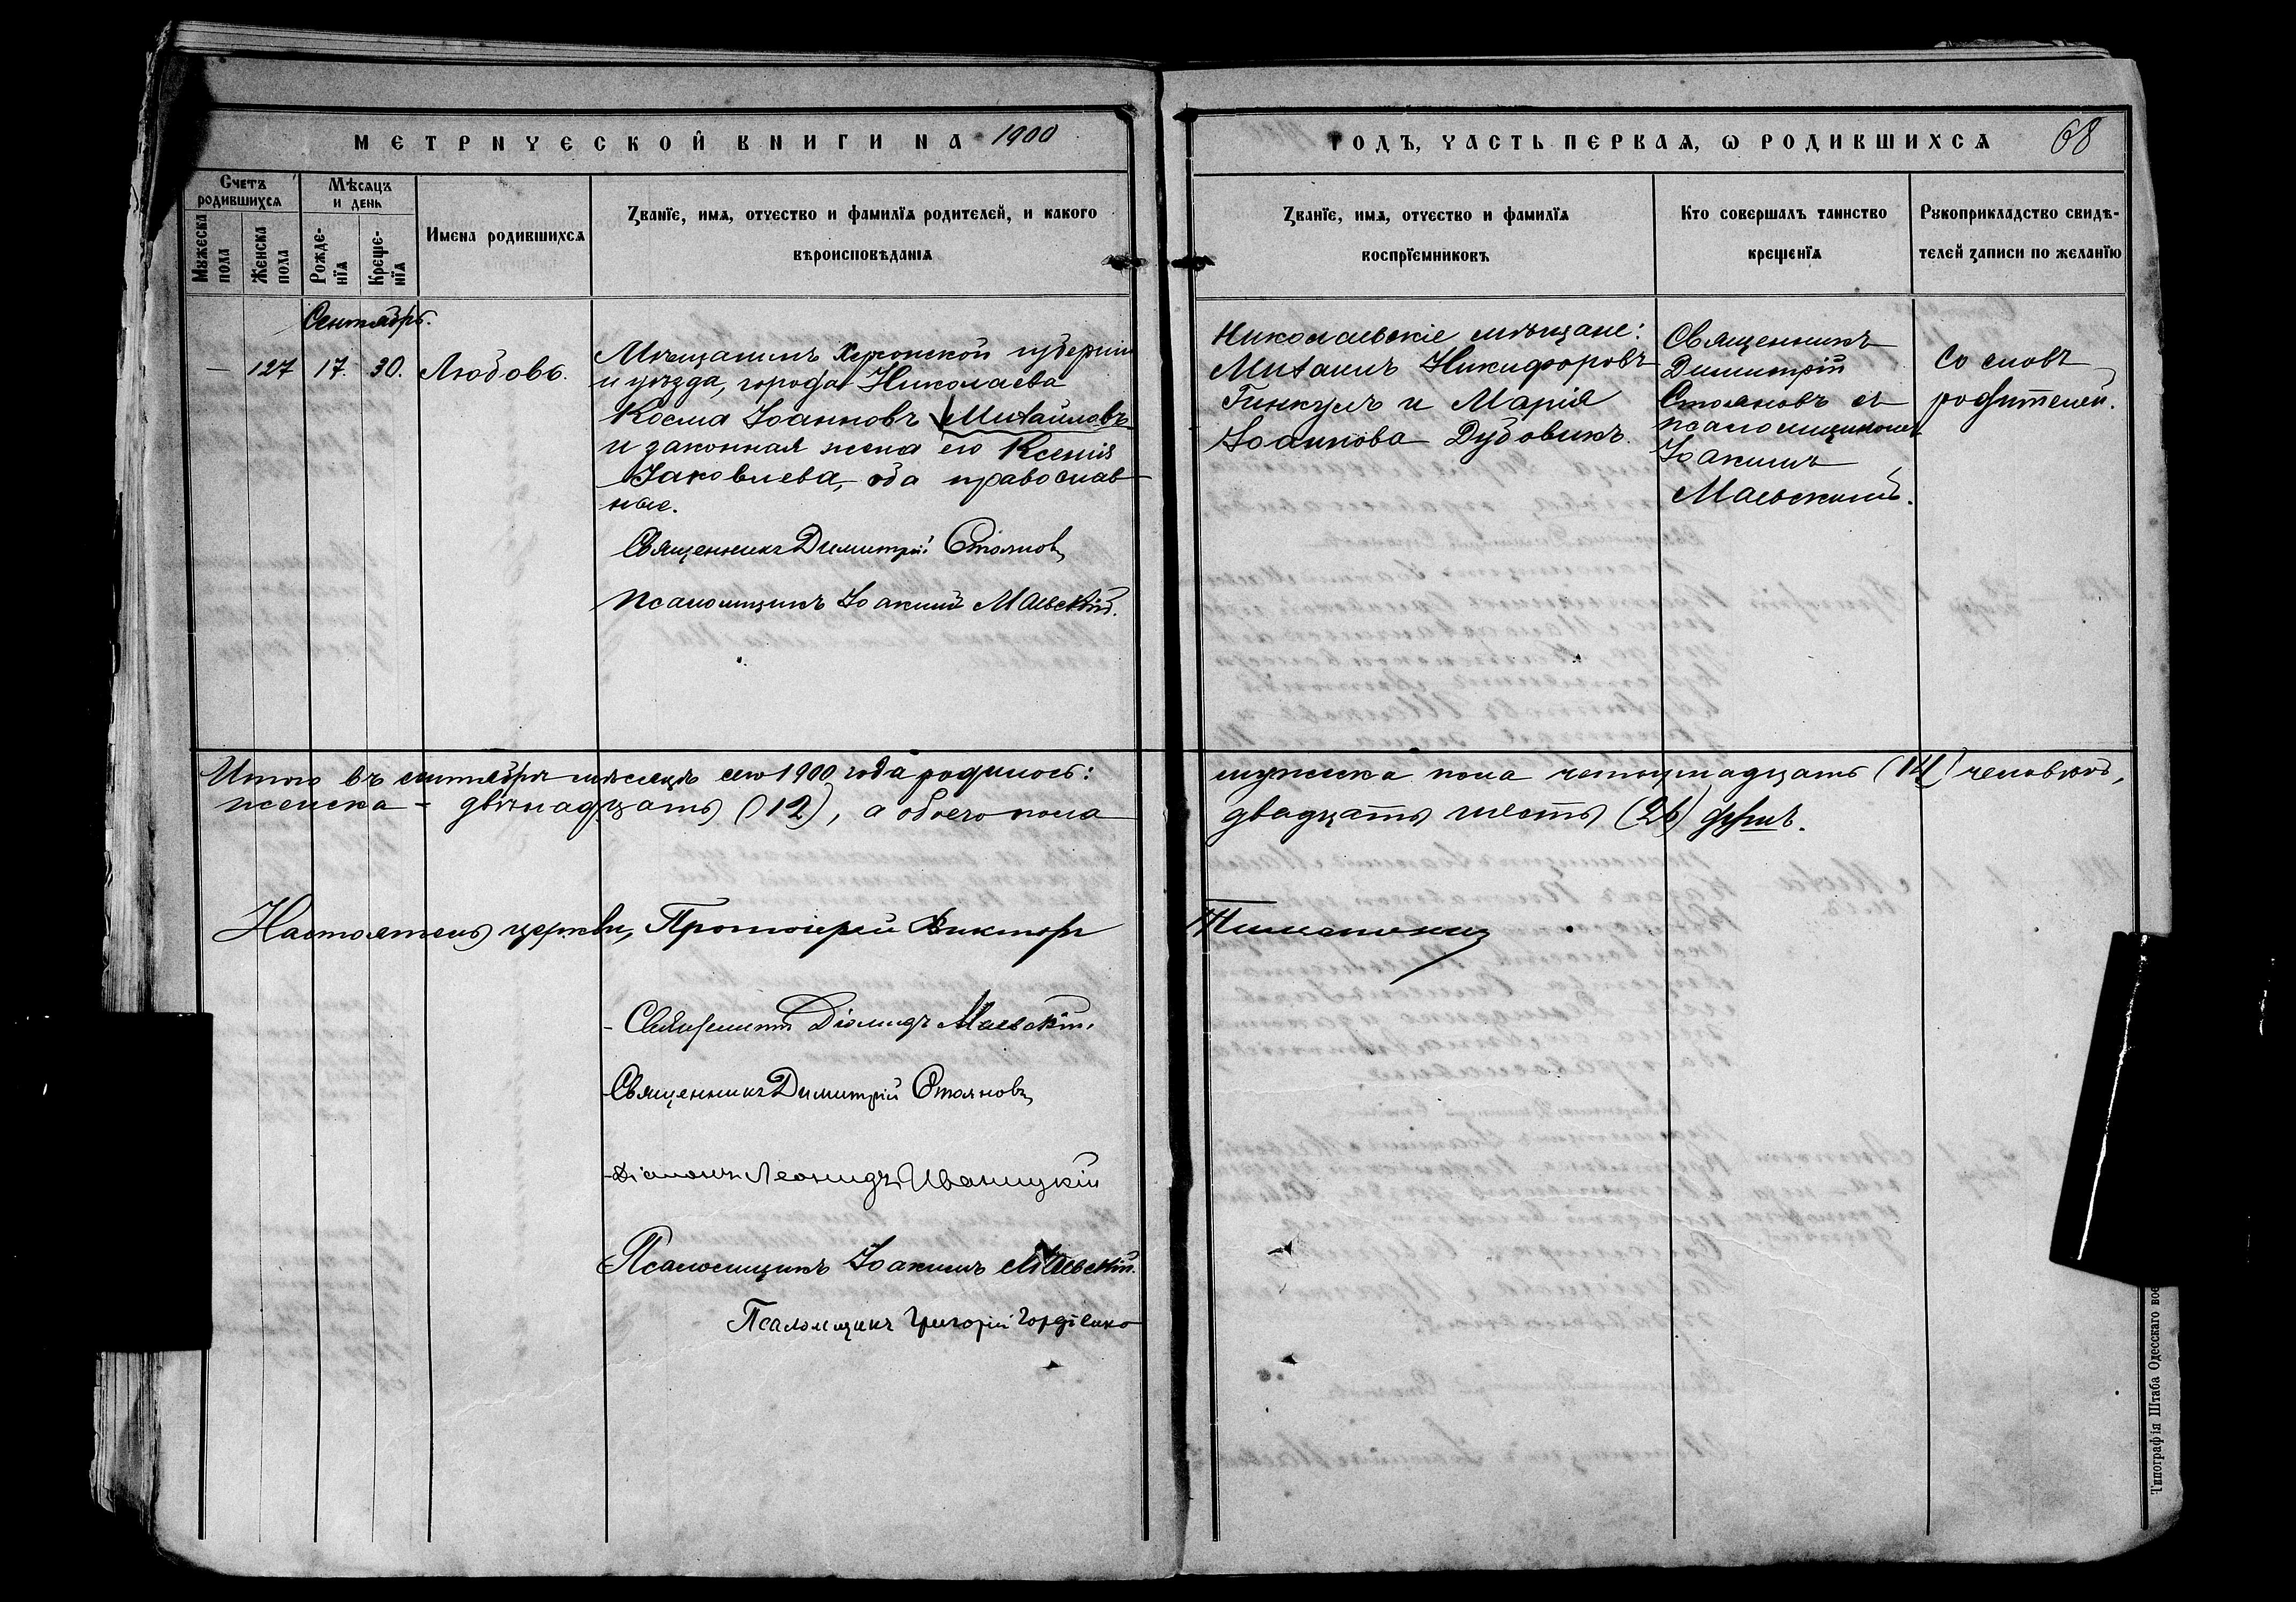 МЕТРИЧЕСКОЙ КНИГИ НА 1900
Счетъ родившихся
Мѣсяцъ и день
Мужеска пола
Женска пола
Рожденїя
Крещенїя
Имена родившихся
Званїе, имя, отчество и фамилїя родителей, и какого
вѣроисповѣданія
Сентябрь.
— 127 17. 30. Любовь.
Мѣщанинъ Херсонской губерніи
и уѣзда, города Николаева
Косма Іоанновъ Михайловъ
и законная жена его Ксенія
Іаковлева, оба православ
ные.
Священникъ Димитрій Стояновъ
Псаломщикъ Іоакимъ Маевскій.
Итого въ сентябрѣ мѣсяцѣ сего 1900 года родилось:
женска - двѣнадцать (12), а обоего пола
Настоятель церкви, Протоіерей Викторъ
Священникъ Діомидъ Маевскій.
Священникъ Димитрій Стояновъ
Діаконъ Леонидъ Иваницкій
Псаломщикъ Іоакимъ Маевскій.
Псаломщикъ Григорій Гордіенко
ГОДЪ, ЧАСТЬ ПЕРВАЯ, Ѡ РОДИВШИХСЯ 68
Званїе, имя, отчество и фамилїя
воспрїемниковъ
Кто совершалъ таинство
крещенїя
Рукоприкладство свидѣ-
телей записи по желанїю
Николаевскіе мѣщане:
Михаилъ Никифоровъ
Гинкулъ и Марія
Іоаннова Дубовикъ.
Священникъ
Димитрій
Стояновъ съ
псаломщикомъ
Іоакимъ
Маевскимъ.
Со словъ
родителей.
мужеска пола четырнадцать (14) человѣкъ,
двадцать шесть (26) душъ.
Типографія Штаба Одесскаго